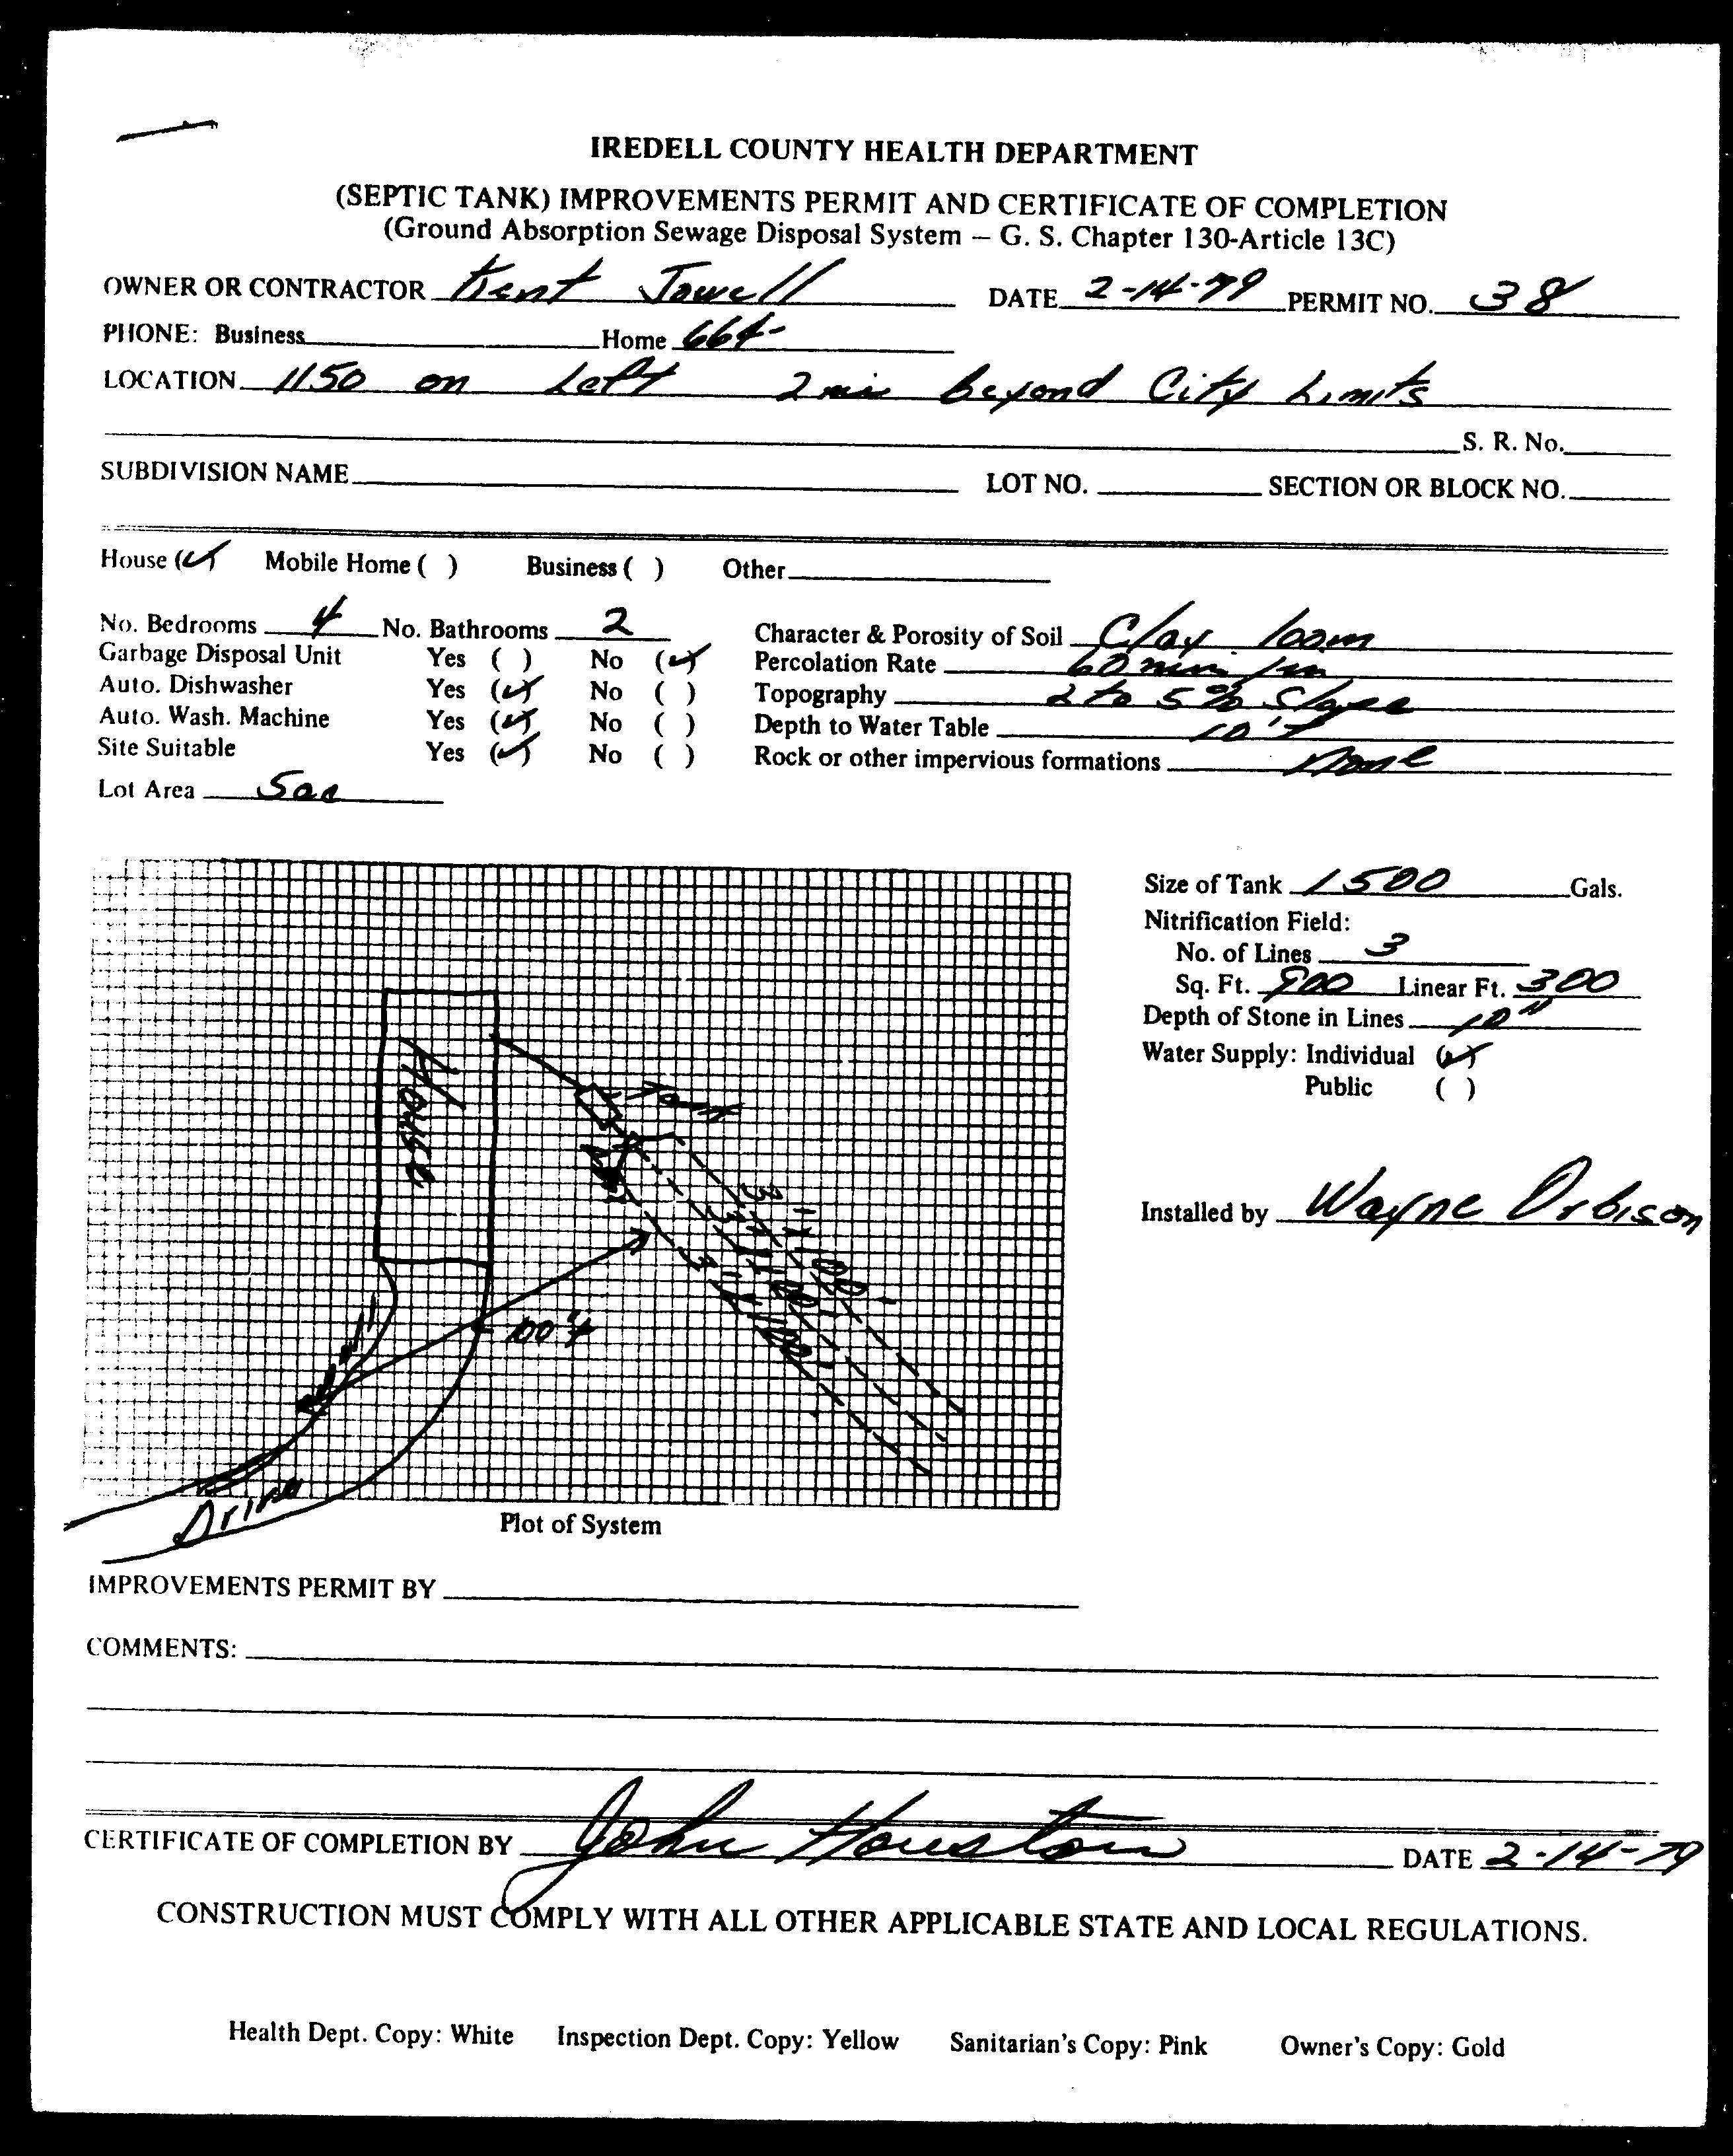 IREDELL COUNTY HEALTH DEPARTMENT
(SEPTIC TANK) IMPROVEMENTS PERMIT AND CERTIFICATE OF COMPLETION
(Ground Absorption Sewage Disposal System – G. S. Chapter 130-Article 13C)
OWNER OR CONTRACTOR Kent Jowell DATE 2-14-79 PERMIT NO. 38
PHONE: Business Home 664-
LOCATION 1150 on Left 2 mi beyond City Limits
S. R. No.
SUBDIVISION NAME LOT NO. SECTION OR BLOCK NO.
House (✓) Mobile Home ( ) Business ( ) Other
No. Bedrooms 4 No. Bathrooms 2 Character & Porosity of Soil Clay loam
Garbage Disposal Unit Yes ( ) No (✓) Percolation Rate 60 min/in
Auto. Dishwasher Yes (✓) No ( ) Topography 2 to 5% Slope
Auto. Wash. Machine Yes (✓) No ( ) Depth to Water Table 10'+
Site Suitable Yes (✓) No ( ) Rock or other impervious formations None
Lot Area 5ac
Size of Tank 1500 Gals.
Nitrification Field:
No. of Lines 3
Sq. Ft. 900 Linear Ft. 300
Depth of Stone in Lines 10"
Water Supply: Individual (✓)
Public ( )
Installed by Wayne Orbison
House
Tank
3'x100'
3'x100'
3'x100'
100'+
Drive
Plot of System
IMPROVEMENTS PERMIT BY
COMMENTS:
CERTIFICATE OF COMPLETION BY John Houston DATE 2-14-79
CONSTRUCTION MUST COMPLY WITH ALL OTHER APPLICABLE STATE AND LOCAL REGULATIONS.
Health Dept. Copy: White Inspection Dept. Copy: Yellow Sanitarian's Copy: Pink Owner's Copy: Gold